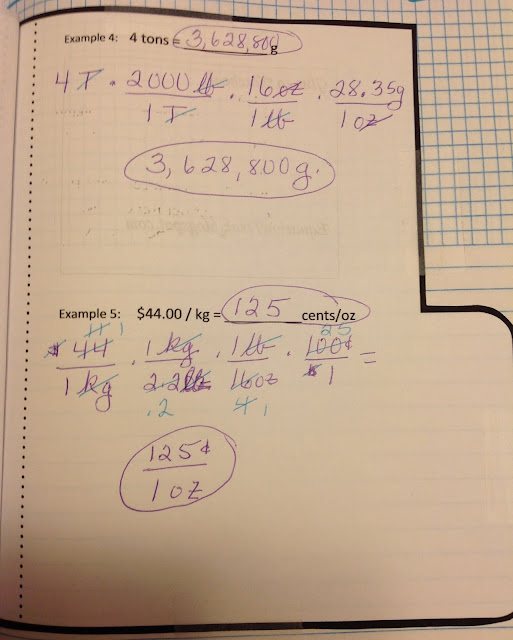 Example 4: 4 tons = 3,628,800 g
4 T · 2000 lb / 1 T · 16 oz / 1 lb · 28.35g / 1 oz
3,628,800 g.
Example 5: $44.00 / kg = 125 cents/oz
11 1 25
$44 / 1 kg · 1 kg / 2.2 lb · 1 lb / 16 oz · 100¢ / $1 =
.2 4 1
125¢
1 oz